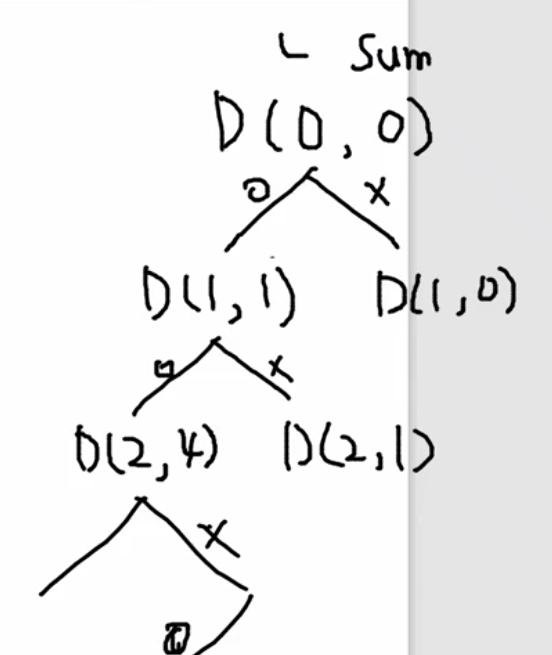 L Sum
D(0,0)
O X
D(1,1) D(1,0)
O X
D(2,4) D(2,1)
X